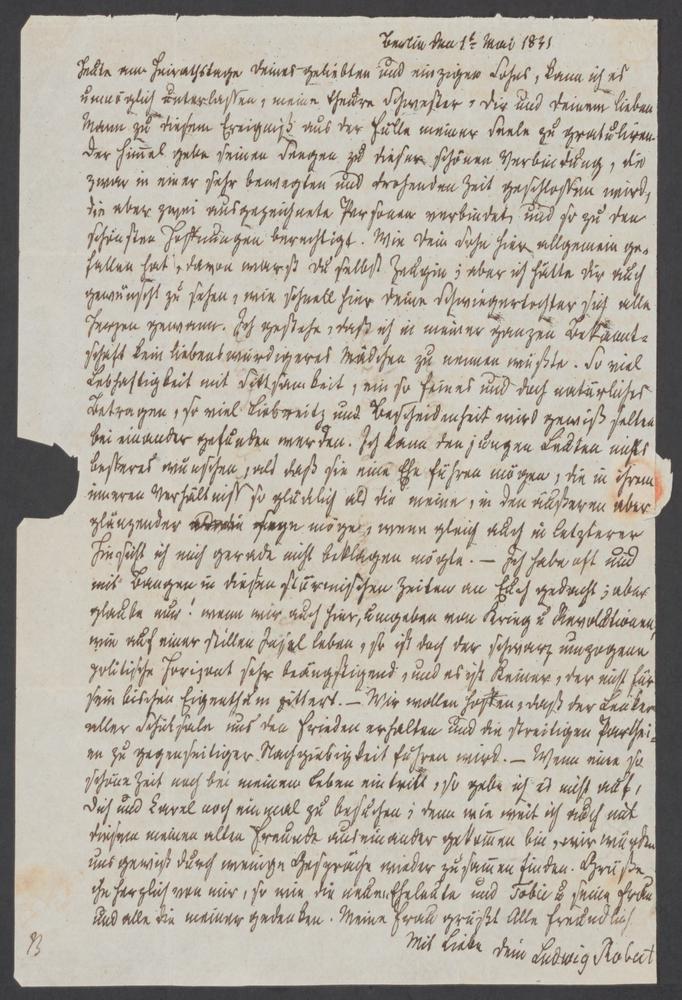 Berlin den 1t Mai 1831
Heute am Heirathstage deines geliebten und einzigen Sohns, kann ich es
unmöglich unterlassen, meine theure Schwester, dir und deinem lieben
Mann zu diesem Ereigniß aus der Fülle meiner Seele zu gratuliren.
Der Himel gebe seinen Seegen zu dieser schönen Verbindung, die
zwar in einer sehr bewegten und drohenden Zeit geschlossen wird,
die aber zwei ausgezeichnete Personen verbindet, und so zu den
schönsten Hoffnungen berechtigt. Wie dein Sohn hier allgemein ge-
fallen hat, davon warst du selbst Zeugin; aber ich hätte dir auch
gewünscht zu sehen, wie schnell hier deine Schwiegertochter sich alle
Herzen gewann. Ich gestehe, daß ich in meiner ganzen Bekannt-
schaft kein liebenswürdigeres Mädchen zu nennen wüßte. So viel
Lebhaftigkeit mit Sittsamkeit, ein so feines und doch natürliches
Betragen, so viel Liebreitz und Bescheidenheit wird gewiß selten
bei einander gefunden werden. Ich kann den jungen Leuten nichts
besseres wünschen, als daß sie eine Ehe führen mögen, die in ihrem
inneren Verhältniß so glücklich als die meine, in den äußeren aber
glänzender sein möge, wenn gleich auch in letzterer
Hinsicht ich mich gerade nicht beklagen mögte. — Ich habe oft und
mit Bangen in diesen stürmischen Zeiten an Euch gedacht; aber
glaube nur! wenn wir auch hier, umgeben von Krieg u Revolutionen,
wie auf einer stillen Insel leben, so ist doch der schwarz umzogene
politische Horizont sehr beängstigend, und es ist Keiner, der nicht für
sein bischen Eigenthum zittert. — Wir wollen hoffen, daß der Lenker
aller Schicksale uns den Frieden erhalten und die streitigen Parthei-
en zu gegenseitiger Nachgiebigkeit führen wird. — Wenn eine so
schöne Zeit noch bei meinem Leben eintritt, so gebe ich es nicht auf,
dich und Carel noch einmal zu besuchen; denn wie weit ich auch mit
diesem meinen alten Freunde auseinander gekomen bin, wir würden
uns gewiß durch wenige Gespräche wieder zusamen finden. Grüße
ihn herzlich von mir, so wie die neuen Eheleute und Tobie u seine Frau
und alle die meiner gedenken. Meine Frau grüßt Alle freundlich.
Mit Liebe dein Ludwig Robert